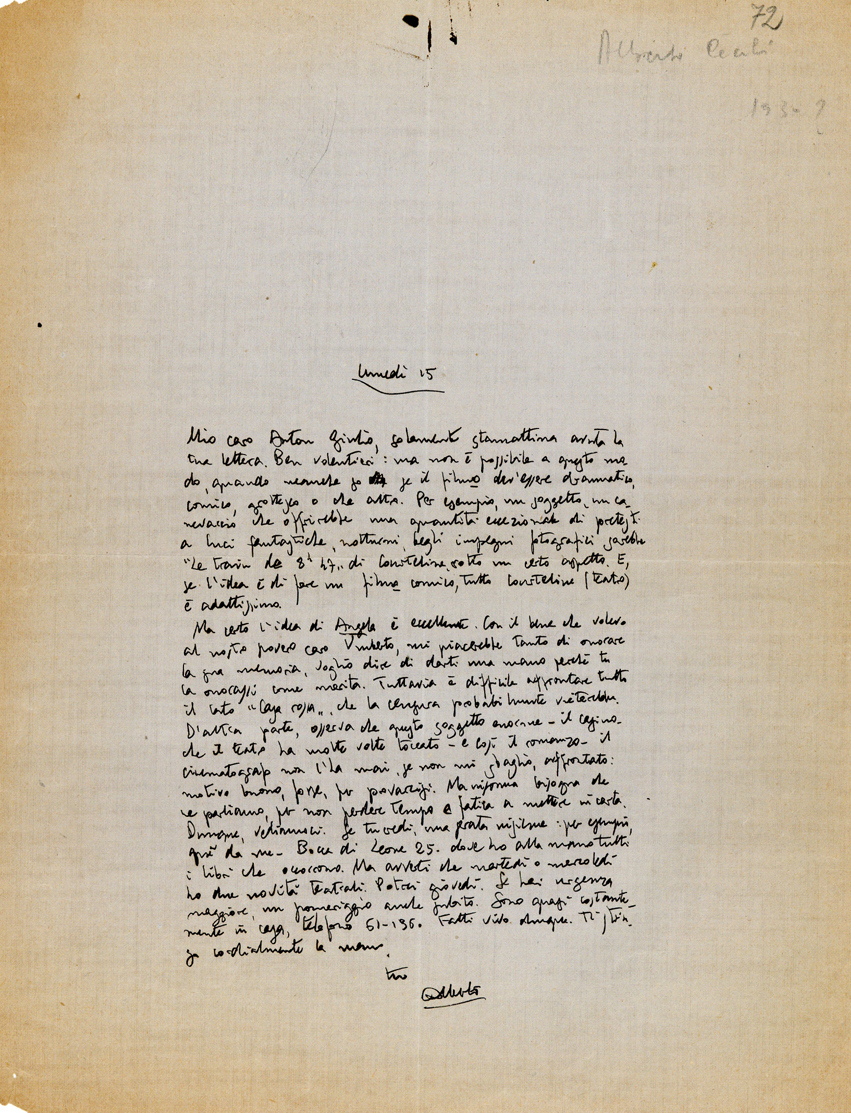 72
Alberto Cecchi
193 ?
Lunedì 15
Mio caro Anton Giulio, solamente stamattina avuta la
tua lettera. Ben volentieri: ma non è possibile a questo mo-
do, quando neanche so se il filmo dev'essere drammatico,
comico, grottesco o che altro. Per esempio, un soggetto, un ca-
nevaccio che offrirebbe una quantità eccezionale di pretesti
a luci fantastiche, notturni, begli impegni fotografici sarebbe
"Le train de 8h 47" di Courteline sotto un certo aspetto. E,
se l'idea è di fare un filmo comico, tutto Courteline (teatro)
è adattissimo.
Ma certo l'idea di Angela è eccellente. Con il bene che volevo
al nostro povero caro Umberto, mi piacerebbe tanto di onorare
la sua memoria, voglio dire di darti una mano perché tu
la onorassi come merita. Tuttavia è difficile affrontare tutto
il lato "Casa rossa", che la censura probabilmente vieterebbe.
D'altra parte, osserva che questo soggetto enorme - il casino -
che il teatro ha molte volte toccato - e così il romanzo - il
cinematografo non l'ha mai, se non mi sbaglio, affrontato:
motivo buono, forse, per provarcisi. Ma insomma bisogna che
ne parliamo, per non perdere tempo e fatica a mettere in carta.
Dunque, vediamoci. Se tu credi, una serata insieme: per esempio,
qui da me - Bocca di Leone 25. dove ho alla mano tutti
i libri che occorrono. Ma avverti che martedì o mercoledì
ho due novità teatrali. Potrei giovedì. Se hai urgenza
maggiore, un pomeriggio anche subito. Sono quasi costante-
mente in casa, telefono 61-136. Fatti vivo dunque. Ti strin-
go cordialmente la mano,
tuo
Alberto